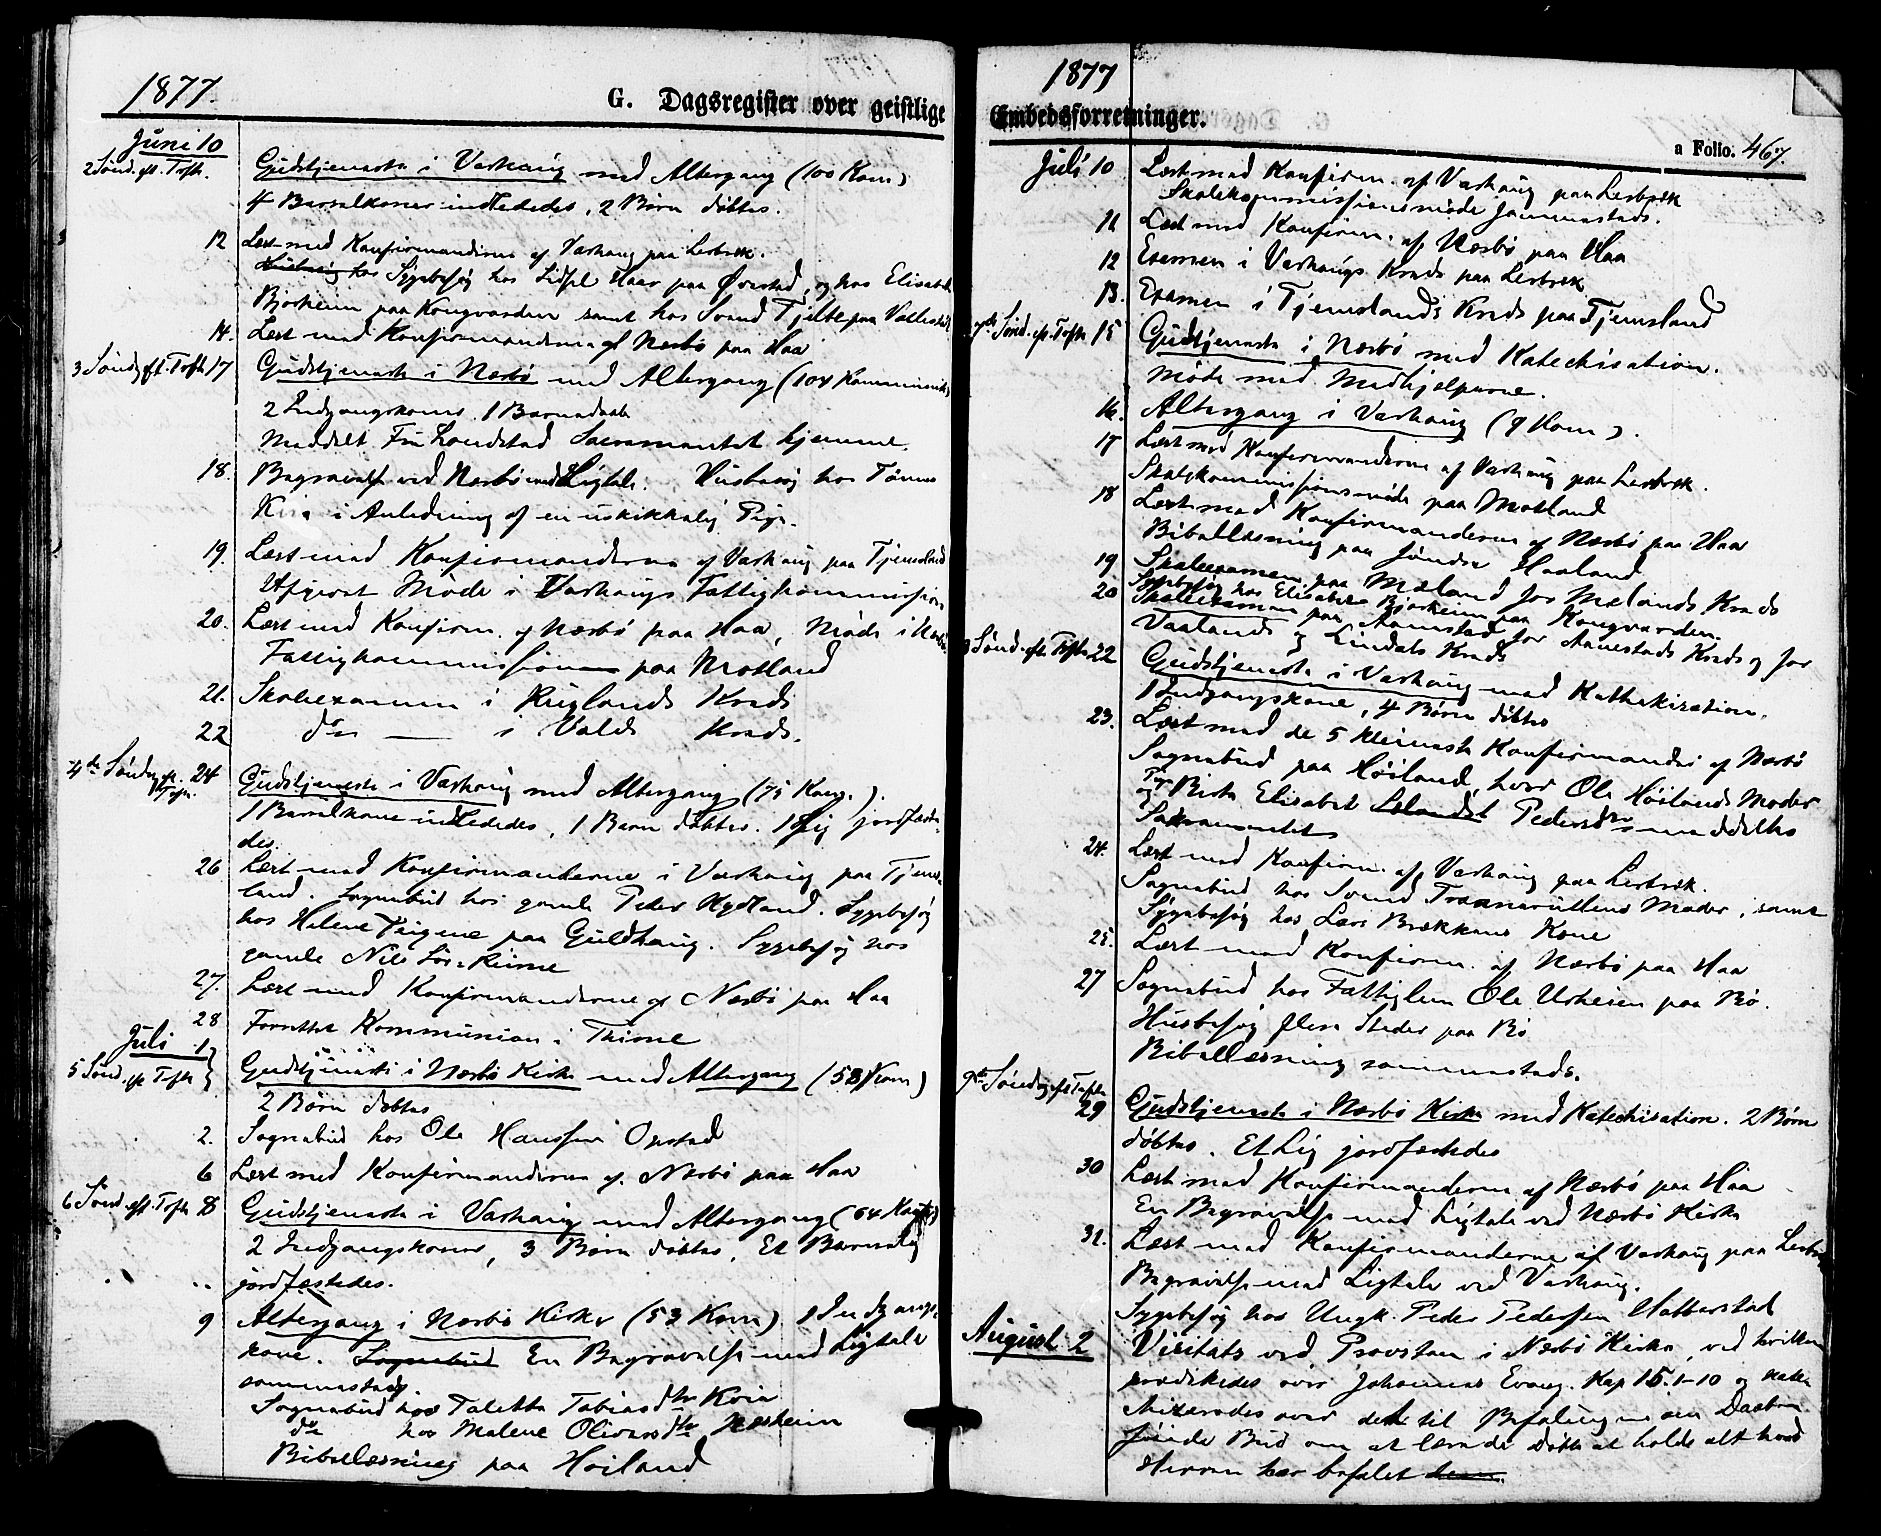 1877.
G. Dagsregister over geistlige
Juni 10
2 Sønd. eft. Trefh.
Gudstjeneste i Varhaug med Altergang (100 Kom)
4 Barselkoner indlededes, 2 Børn døbtes.
12 Læst med Konfirmanderne af Varhaug paa Lerbrek.
Husbesøg hos Sygebesøg hos Sidsel Haar paa Ørestad, og hos Elisabeth
Bjorheim paa Kongvarden samt hos Svend Tjelte paa
14. Læst med Konfirmanderne af Nærbø paa Haa
3 Sønd. eft. Trefh 17 Gudstjeneste i Nærbø med Altergang (104
2 Indgangskoner. 1 Barnedaab
Meddelt Fru Landstad Sacramentet hjemme.
18. Begravelse ved Nærbø med Ligtale. Husbesøg hos Tønnes
i Anledning af en uskikkelig Pige.
19. Læst med Konfirmanderne af Varhaug paa Tjemsland
Møde i Varhaugs Fattigkommission
20. Læst med Konfirm. af Nærbø paa Haa, Møde i Nærbø
Fattigkommission paa Motland
21. Skoleexamen i Ruglands Kreds
22 do — i Valds Kreds.
4de Søndag ef. Trefh. 24
Gudstjeneste i Varhaug med Altergang (75 Kom.).
1 Barselkone indlededes, 1 Barn døbtes. 1 Lig jordfæste-
des.
26 Læst med Konfirmanderne i Varhaug paa Tjems-
land. Sognebud hos gamle Peder Hydland. Sygebesøg
hos Helene Teigene paa Guldhaug. Sygebesøg hos
gamle Nils
27. Læst med Konfirmanderne af Nærbø paa Haa
28 Forrettet Kommunion i Thime
Juli 1
5 Sønd. ef Trefh
Gudstjeneste i Nærbø Kirke med Altergang (53 Kom)
2 Børn døbtes
2. Sognebud hos Ole Hanssen Opstad
6 Læst med Konfirmanderne af Nærbø paa Haa
6 Sønd. eft. Trefh 8 Gudstjeneste i Varhaug med Altergang (64
2 Indgangskoner, 3 Børn døbtes, Et Barnelig
jordfæstedes.
9 Altergang i Nærbø Kirke (53 Kom) 1 Indgangs-
kone. Sognebud En Begravelse med Ligtale
sammesteds.
Sognebud hos Taletta Tobiasdtr
do hos Malene Oliversdtr Næsheim
Bibellæsning paa Høiland
1877
Embedsforretninger.
a Folio. 467.
Juli 10 Læst med Konfirm. af Varhaug paa Lerbrek
Skolekommissionsmøde sammesteds.
11 Læst med Konfirm. af Nærbø paa Haa
12 Examen i Varhaugs Kreds paa Lerbrek
13. Examen i Tjemslands Kreds paa Tjemsland
7de Sønd. ef. Trefh 15 Gudstjeneste i Nærbø med Katechisation.
Møde med Medhjelperne.
16. Altergang i Varhaug (9 Kom).
17 Læst med Konfirmanderne af Varhaug paa Lerbrek.
Skolekommissionsmøde paa Motland
18 Læst med Konfirmanderne af Nærbø paa Haa
Bibellæsning paa Søndre Haaland
19 Skoleexamen paa Mæland for Mælands Kreds
Sygebesøg hos Elisabeth Bjorheim paa Kongvarden.
20 Skoleexamen paa Aanestad for Aanestads Kreds og for
Vaalands og Lindals Kreds
8 Sønd. eft. Trefh 22 Gudstjeneste i Varhaug med Kathekisation.
1 Indgangskone, 4 Børn døbtes
23. Læst med de 5 Konfirmander af Nærbø
Sognebud paa Høiland, hvor Ole Høilands Moder
og Pige Birte Elisabet Pedersdtr meddeltes
Sakramentet
24. Læst med Konfirm. af Varhaug paa Lerbrek.
Sognebud hos Svend Moder, samt
Sygebesøg hos Lars Brækkans Kone
25. Læst med Konfirm. af Nærbø paa Haa
27 Sognebud hos Fattiglem Ole Urheien paa Bø.
Husbesøg flere Steder paa Bø
Bibellæsning sammesteds.
9de Søndag eft Trefh
29 Gudstjeneste i Nærbø Kirke med Katechisation. 2 Børn
døbtes. Et Lig jordfæstedes
30 Læst med Konfirmanderne af Nærbø paa Haa
En Begravelse med Ligtale ved Nærbø Kirke
31. Læst med Konfirmanderne af Varhaug paa
Begravelse med Ligtale ved Varhaug.
Sygebesøg hos Ungk. Peder Pedersen Hatterstad
August 2 Visitats ved Provsten i Nærbø Kirke, ved hvilken
prædikedes over Johannes Evang. Kap 15. 1-10 og kate-
chiseredes over det til Befalingen om Daaben
føiede Bud om at lære de døbte at holde alt hvad
Herren har befalet